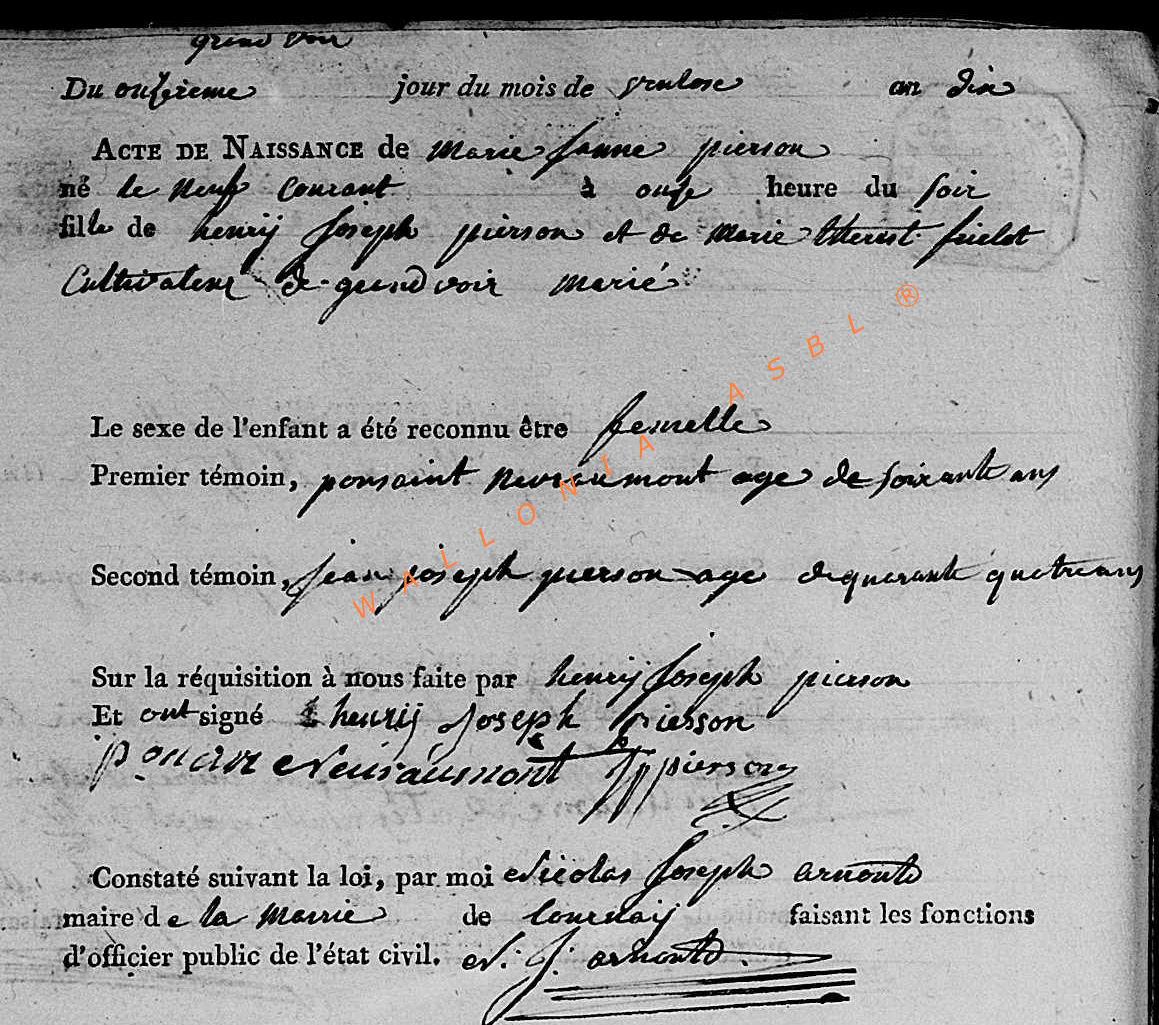 grand voir
Du onsieme jour du mois de ventose an dix
ACTE DE NAISSANCE de marie janne pierson
né le neuf Courant à onse heure du soir
fille de henrij joseph pierson et de marie therest frielot
Cultivateur de grand voir marié
Le sexe de l'enfant a été reconnu être femelle
Premier témoin, ponsaint neuvraumont age de soixante ans
Second témoin, jean joseph pierson age de quarante quatre ans
Sur la réquisition à nous faite par henrij joseph pierson
Et ont signé henrij joseph pierson
Neuvraumont JJ pierson
Constaté suivant la loi, par moi Nicolas joseph arnould
maire de la Mairie de tournaij faisant les fonctions
d'officier public de l'état civil. N. J. arnould.
WALLONIA ASBL ®